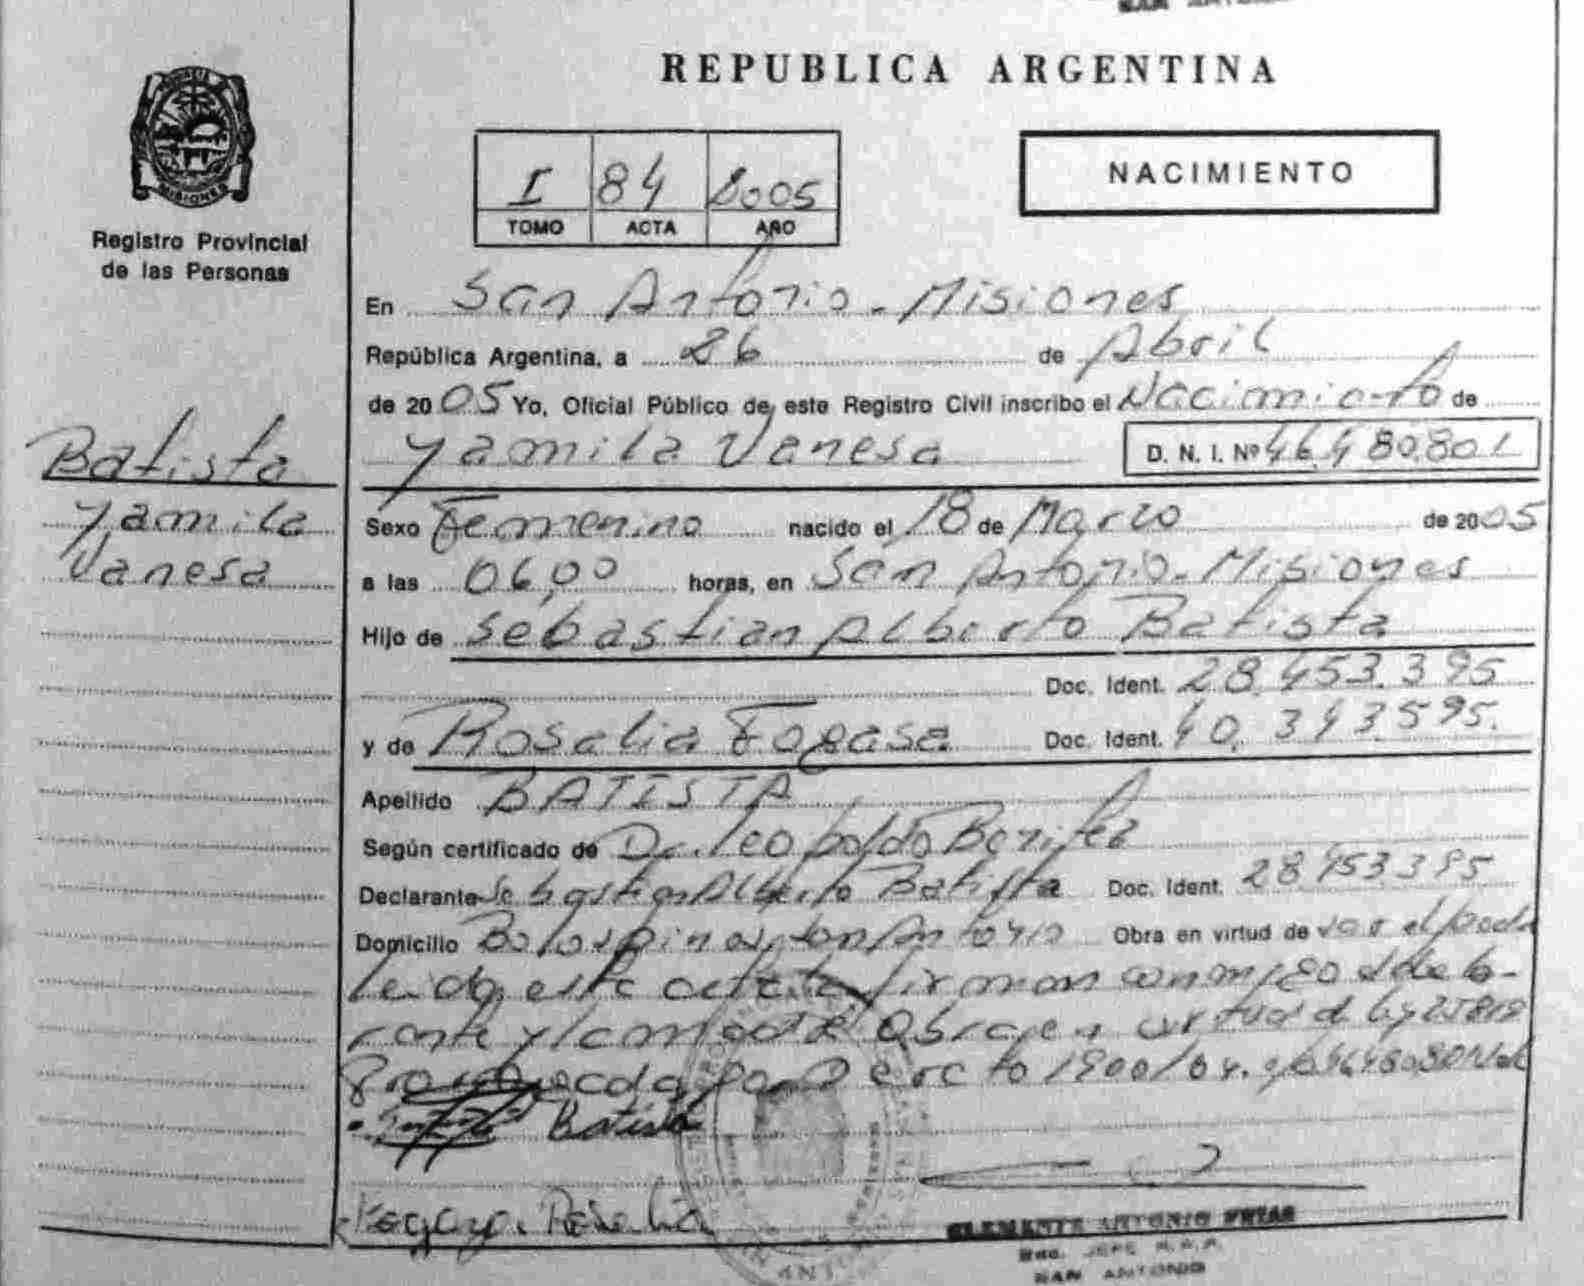 REPUBLICA ARGENTINA
MISIONES
Registro Provincial
de las Personas
I 84 2005
TOMO ACTA AÑO
NACIMIENTO
En San Antonio - Misiones
República Argentina, a 26 de Abril
de 2005 Yo, Oficial Público de este Registro Civil inscribo el Nacimiento de
Yamila Vanesa D. N. I. Nº 46.480.801
Batista
Yamila
Vanesa
Sexo Femenino nacido el 18 de Marzo de 2005
a las 06,00 horas, en San Antonio - Misiones
Hijo de Sebastian Alberto Batista
Doc. Ident. 28.453.395
y de Rosalia Fogasa Doc. Ident. 40.343.595.
Apellido BATISTA
Según certificado de Dr. Leopoldo Benitez
Declarante Sebastian Alberto Batista Doc. Ident. 28453395
Domicilio San Antonio Obra en virtud de ser el padre
Leida esta acta firman conmigo el decla-
rante y la madre Obra en virtud d Ley 25819
por Decreto 1900/04.
Batista
Rosalia
CLEMENTE ANTONIO FRIAS
JEFE
SAN ANTONIO